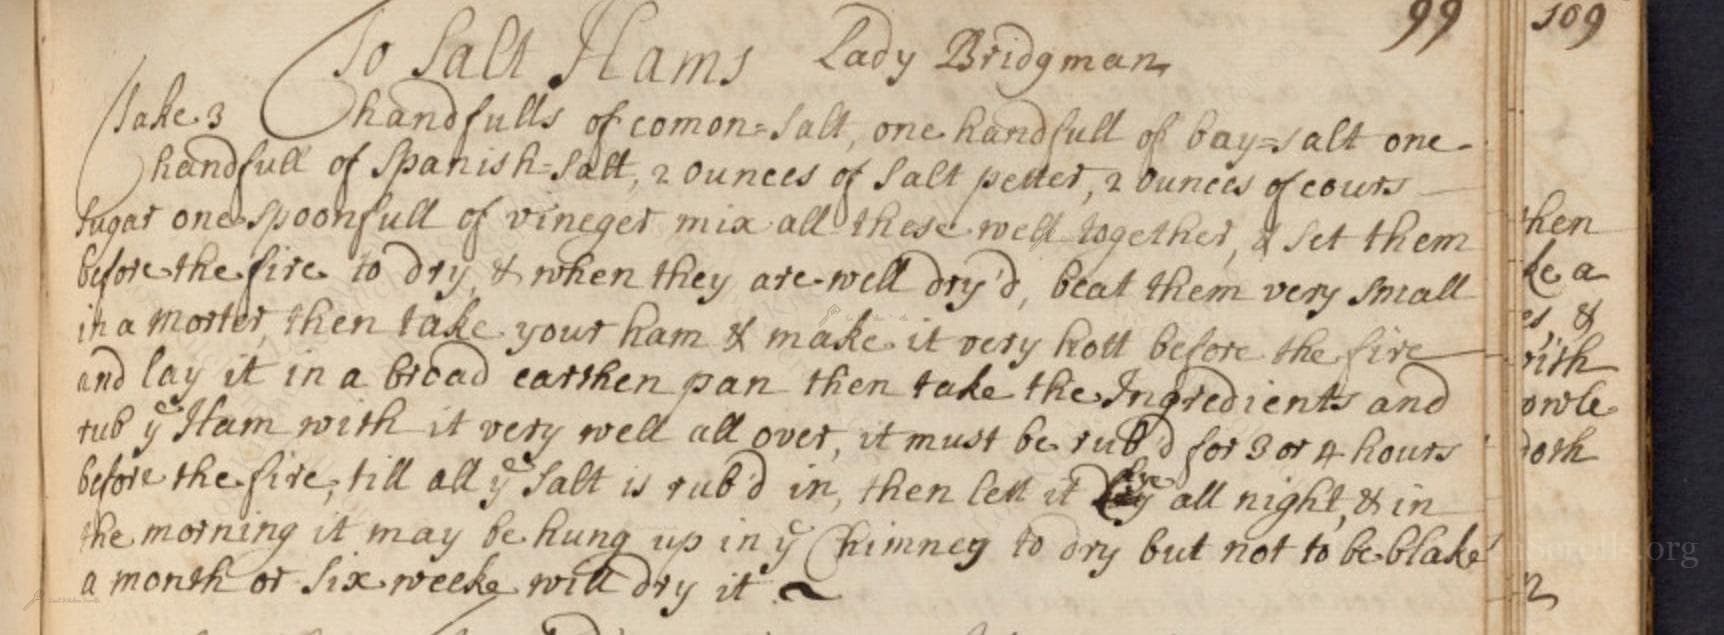 99
109
To Salt Hams Lady Bridgman
Take 3 handfulls of comon=Salt, one handfull of bay=salt one
handfull of Spanish=Salt, 2 ounces of Salt petter, 2 ounces of cours
sugar one spoonfull of vineger mix all these well together, & set them
before the fire to dry, & when they are well dry'd, beat them very small
in a morter, then take your ham & make it very hott before the fire
and lay it in a broad earthen pan then take the Ingredients and
rub ye Ham with it very well all over, it must be rub'd for 3 or 4 hours
before the fire, till all ye Salt is rub'd in, then lett it lye all night, & in
the morning it may be hung up in ye Chimney to dry but not to be blake
a month or six weeke will dry it